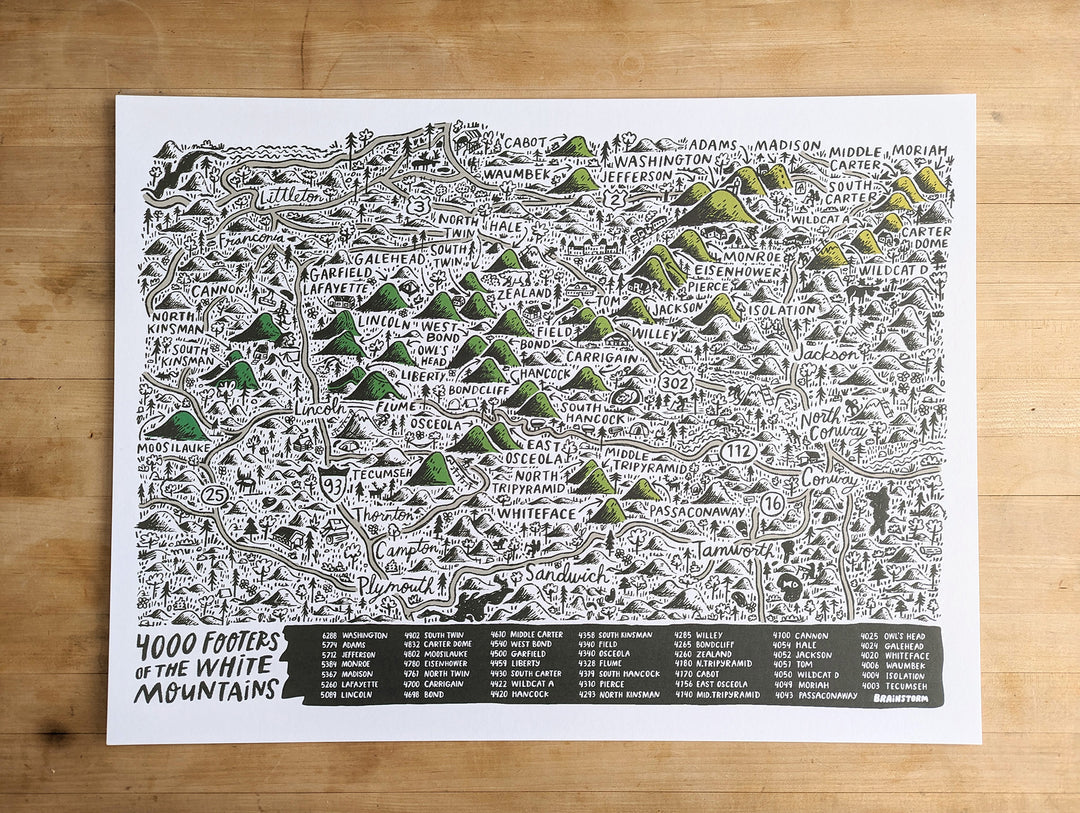 CABOT
ADAMS
MADISON
WASHINGTON
MIDDLE
CARTER
MORIAH
WAUMBEK
JEFFERSON
Littleton
3
2
SOUTH
CARTER
WILDCAT A
NORTH
TWIN
HALE
CARTER
DOME
Franconia
GALEHEAD
SOUTH
TWIN
MONROE
WILDCAT D
GARFIELD
EISENHOWER
CANNON
LAFAYETTE
ZEALAND
PIERCE
TOM
JACKSON
ISOLATION
NORTH
KINSMAN
LINCOLN
WEST
BOND
FIELD
WILLEY
BOND
SOUTH
KINSMAN
OWL'S
HEAD
CARRIGAIN
Jackson
LIBERTY
HANCOCK
302
BONDCLIFF
Lincoln
FLUME
SOUTH
HANCOCK
North
Conway
OSCEOLA
MOOSILAUKE
EAST
OSCEOLA
MIDDLE
TRIPYRAMID
112
TECUMSEH
93
NORTH
TRIPYRAMID
Conway
25
16
Thornton
WHITEFACE
PASSACONAWAY
Campton
Tamworth
Plymouth
Sandwich
4000 FOOTERS
OF THE WHITE
MOUNTAINS
6288 WASHINGTON
5774 ADAMS
5712 JEFFERSON
5384 MONROE
5367 MADISON
5260 LAFAYETTE
5089 LINCOLN
4902 SOUTH TWIN
4832 CARTER DOME
4802 MOOSILAUKE
4780 EISENHOWER
4761 NORTH TWIN
4700 CARRIGAIN
4698 BOND
4610 MIDDLE CARTER
4540 WEST BOND
4500 GARFIELD
4459 LIBERTY
4430 SOUTH CARTER
4422 WILDCAT A
4420 HANCOCK
4358 SOUTH KINSMAN
4340 FIELD
4340 OSCEOLA
4328 FLUME
4319 SOUTH HANCOCK
4310 PIERCE
4293 NORTH KINSMAN
4285 WILLEY
4265 BONDCLIFF
4260 ZEALAND
4180 N.TRIPYRAMID
4170 CABOT
4156 EAST OSCEOLA
4140 MID.TRIPYRAMID
4100 CANNON
4054 HALE
4052 JACKSON
4051 TOM
4050 WILDCAT D
4049 MORIAH
4043 PASSACONAWAY
4025 OWL'S HEAD
4024 GALEHEAD
4020 WHITEFACE
4006 WAUMBEK
4004 ISOLATION
4003 TECUMSEH
BRAINSTORM